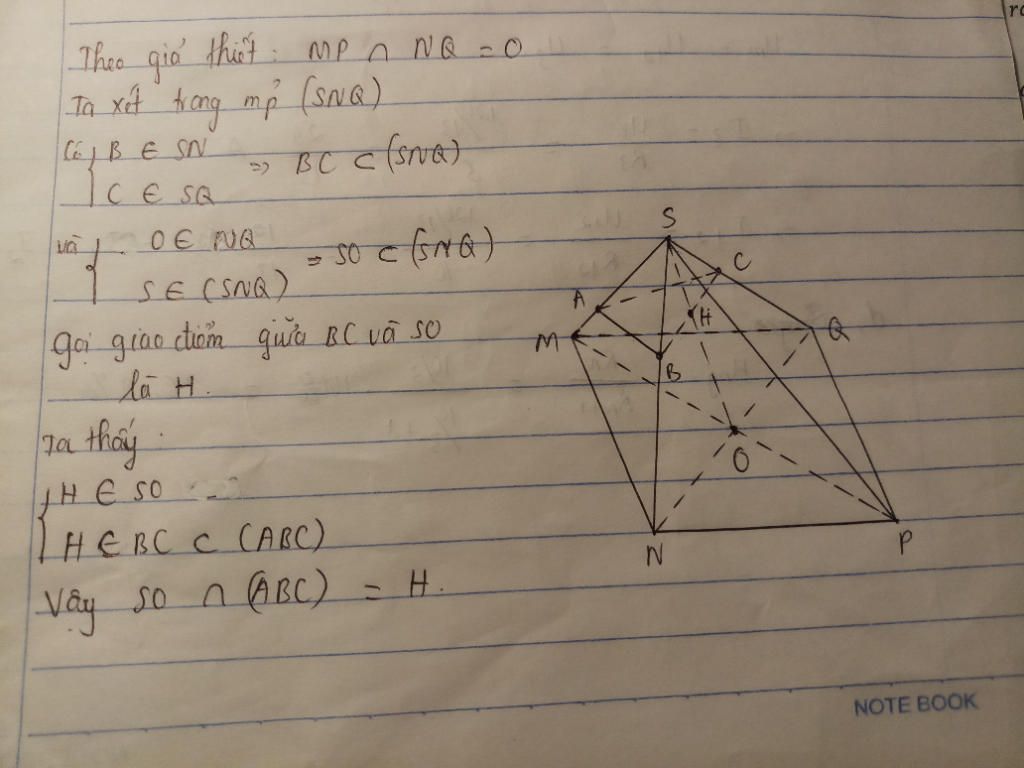 Theo giả thiết: MP ∩ NQ = O
Ta xét trong mp (SNQ)
Có { B ∈ SN
C ∈ SQ
=> BC ⊂ (SNQ)
và { O ∈ NQ
S ∈ (SNQ)
= SO ⊂ (SNQ)
Gọi giao điểm giữa BC và SO
là H.
Ta thấy
{ H ∈ SO
H ∈ BC ⊂ (ABC)
Vậy SO ∩ (ABC) = H.
S
C
A
H
M
Q
B
O
N
P
NOTE BOOK